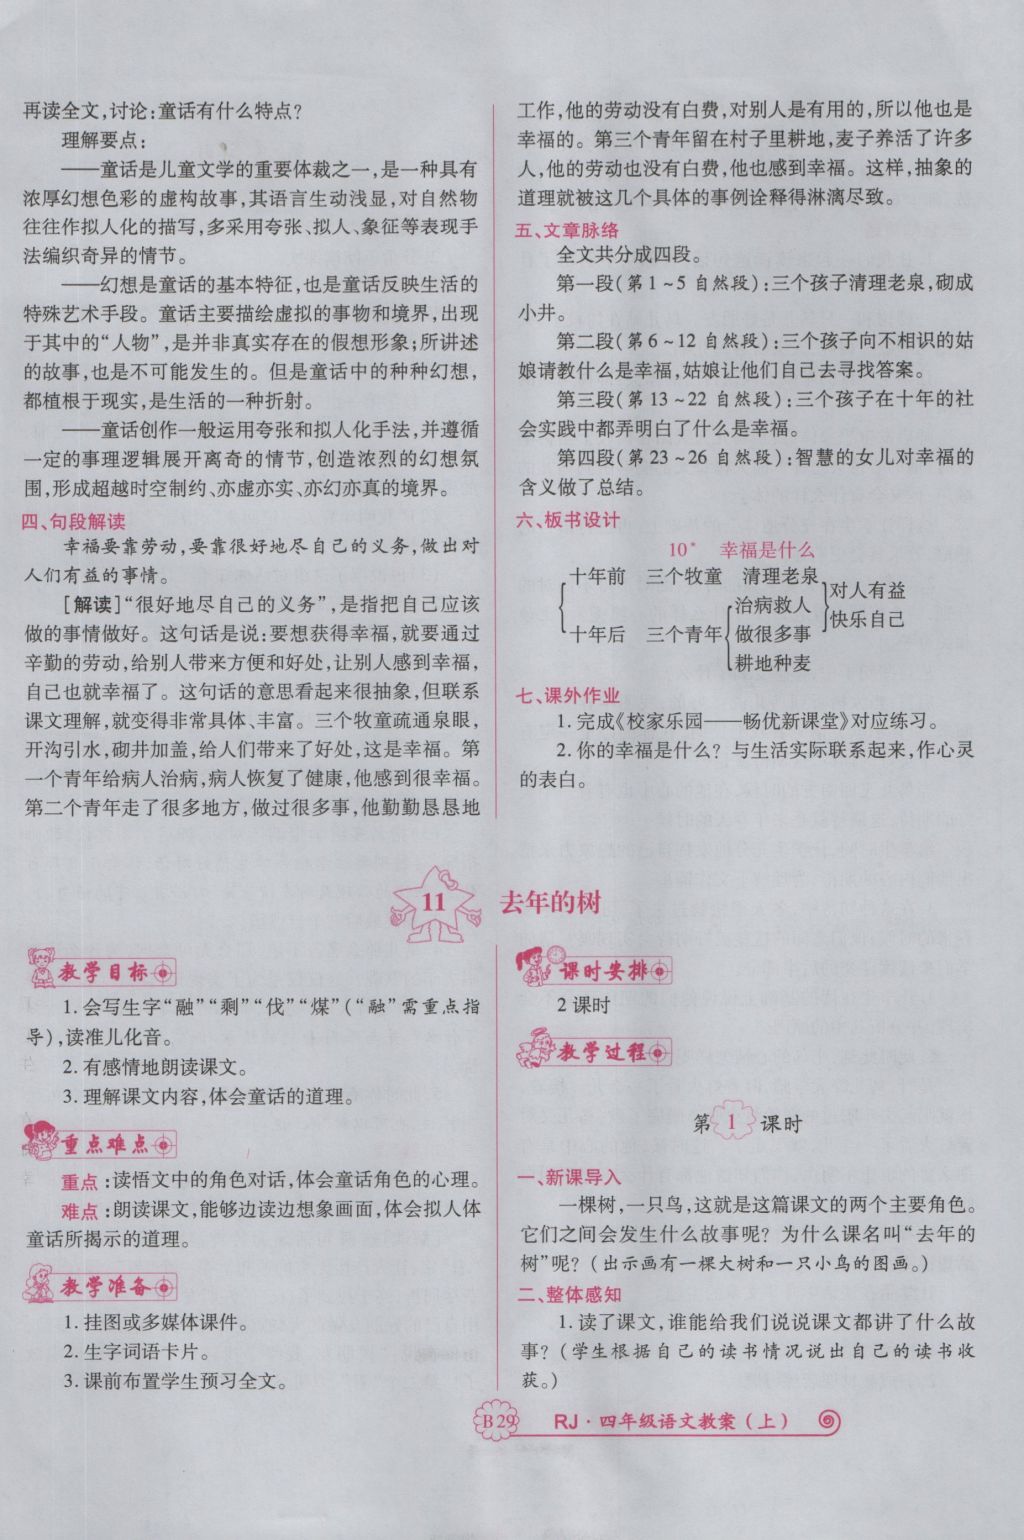 再读全文,讨论:童话有什么特点?
理解要点:
——童话是儿童文学的重要体裁之一,是一种具有
浓厚幻想色彩的虚构故事,其语言生动浅显,对自然物
往往作拟人化的描写,多采用夸张、拟人、象征等表现手
法编织奇异的情节。
——幻想是童话的基本特征,也是童话反映生活的
特殊艺术手段。童话主要描绘虚拟的事物和境界,出现
于其中的“人物”,是并非真实存在的假想形象;所讲述
的故事,也是不可能发生的。但是童话中的种种幻想,
都植根于现实,是生活的一种折射。
——童话创作一般运用夸张和拟人化手法,并遵循
一定的事理逻辑展开离奇的情节,创造浓烈的幻想氛
围,形成超越时空制约、亦虚亦实、亦幻亦真的境界。
四、句段解读
幸福要靠劳动,要靠很好地尽自己的义务,做出对
人们有益的事情。
[解读]“很好地尽自己的义务”,是指把自己应该
做的事情做好。这句话是说:要想获得幸福,就要通过
辛勤的劳动,给别人带来方便和好处,让别人感到幸福,
自己也就幸福了。这句话的意思看起来很抽象,但联系
课文理解,就变得非常具体、丰富。三个牧童疏通泉眼,
开沟引水,砌井加盖,给人们带来了好处,这是幸福。第
一个青年给病人治病,病人恢复了健康,他感到很幸福。
第二个青年走了很多地方,做过很多事,他勤勤恳恳地
工作,他的劳动没有白费,对别人是有用的,所以他也是
幸福的。第三个青年留在村子里耕地,麦子养活了许多
人,他的劳动也没有白费,他也感到幸福。这样,抽象的
道理就被这几个具体的事例诠释得淋漓尽致。
五、文章脉络
全文共分成四段。
第一段(第1~5自然段):三个孩子清理老泉,砌成
小井。
第二段(第6~12自然段):三个孩子向不相识的姑
娘请教什么是幸福,姑娘让他们自己去寻找答案。
第三段(第13~22自然段):三个孩子在十年的社
会实践中都弄明白了什么是幸福。
第四段(第23~26自然段):智慧的女儿对幸福的
含义做了总结。
六、板书设计
10* 幸福是什么
十年前 三个牧童 清理老泉
治病救人
对人有益
快乐自己
十年后 三个青年 做很多事
耕地种麦
七、课外作业
1.完成《校家乐园——畅优新课堂》对应练习。
2.你的幸福是什么?与生活实际联系起来,作心灵
的表白。
11 去年的树
教学目标
1.会写生字“融”“剩”“伐”“煤”(“融”需重点指
导),读准儿化音。
2.有感情地朗读课文。
3.理解课文内容,体会童话的道理。
重点难点
重点:读悟文中的角色对话,体会童话角色的心理。
难点:朗读课文,能够边读边想象画面,体会拟人体
童话所揭示的道理。
教学准备
1.挂图或多媒体课件。
2.生字词语卡片。
3.课前布置学生预习全文。
课时安排
2课时
教学过程
第1课时
一、新课导入
一棵树,一只鸟,这就是这篇课文的两个主要角色。
它们之间会发生什么故事呢?为什么课名叫“去年的
树”呢?(出示画有一棵大树和一只小鸟的图画。)
二、整体感知
1.读了课文,谁能给我们说说课文都讲了什么故
事?(学生根据自己的读书情况说出自己的读书收
获。)
B29 RJ·四年级语文教案(上)